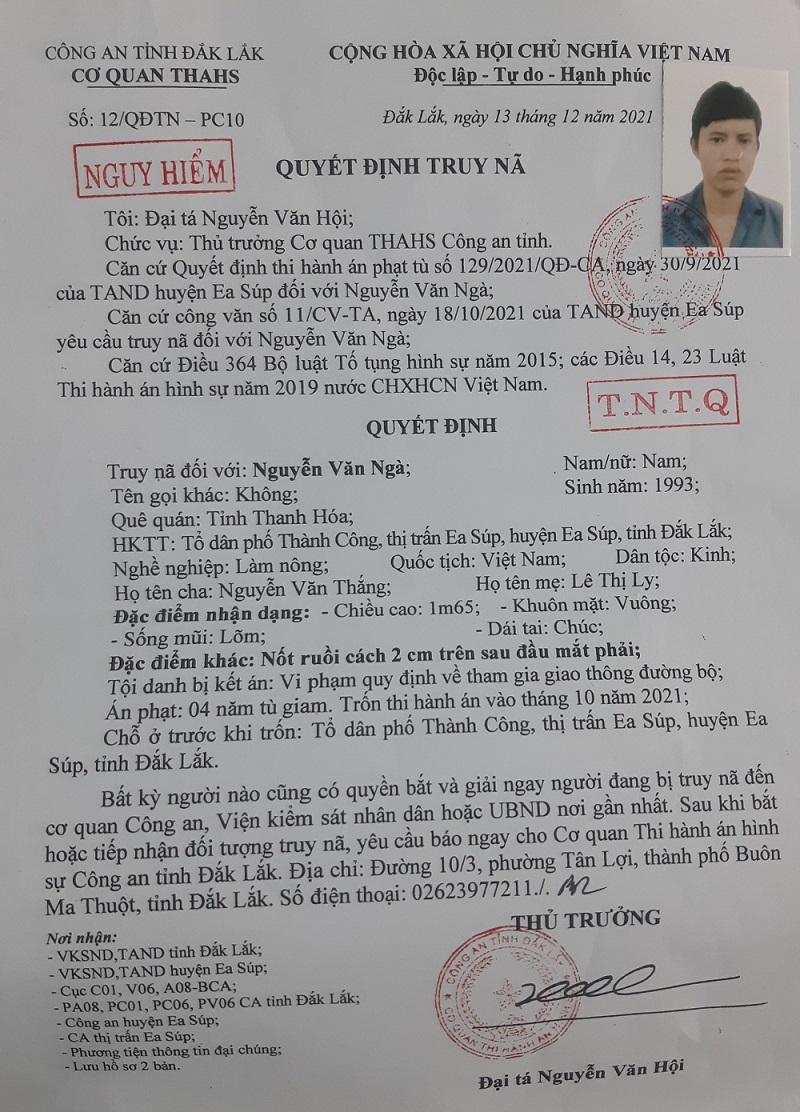 CÔNG AN TỈNH ĐẮK LẮK
CƠ QUAN THAHS
CỘNG HÒA XÃ HỘI CHỦ NGHĨA VIỆT NAM
Độc lập - Tự do - Hạnh phúc
Số: 12/QĐTN – PC10
Đắk Lắk, ngày 13 tháng 12 năm 2021
NGUY HIỂM
QUYẾT ĐỊNH TRUY NÃ
Tôi: Đại tá Nguyễn Văn Hội;
Chức vụ: Thủ trưởng Cơ quan THAHS Công an tỉnh.
Căn cứ Quyết định thi hành án phạt tù số 129/2021/QĐ-CA, ngày 30/9/2021
của TAND huyện Ea Súp đối với Nguyễn Văn Ngà;
Căn cứ công văn số 11/CV-TA, ngày 18/10/2021 của TAND huyện Ea Súp
yêu cầu truy nã đối với Nguyễn Văn Ngà;
Căn cứ Điều 364 Bộ luật Tố tụng hình sự năm 2015; các Điều 14, 23 Luật
Thi hành án hình sự năm 2019 nước CHXHCN Việt Nam.
T.N.T.Q
QUYẾT ĐỊNH
Truy nã đối với: Nguyễn Văn Ngà; Nam/nữ: Nam;
Tên gọi khác: Không; Sinh năm: 1993;
Quê quán: Tỉnh Thanh Hóa;
HKTT: Tổ dân phố Thành Công, thị trấn Ea Súp, huyện Ea Súp, tỉnh Đắk Lắk;
Nghề nghiệp: Làm nông; Quốc tịch: Việt Nam; Dân tộc: Kinh;
Họ tên cha: Nguyễn Văn Thắng; Họ tên mẹ: Lê Thị Ly;
Đặc điểm nhận dạng: - Chiều cao: 1m65; - Khuôn mặt: Vuông;
- Sống mũi: Lõm; - Dái tai: Chúc;
Đặc điểm khác: Nốt ruồi cách 2 cm trên sau đầu mắt phải;
Tội danh bị kết án: Vi phạm quy định về tham gia giao thông đường bộ;
Án phạt: 04 năm tù giam. Trốn thi hành án vào tháng 10 năm 2021;
Chỗ ở trước khi trốn: Tổ dân phố Thành Công, thị trấn Ea Súp, huyện Ea
Súp, tỉnh Đắk Lắk.
Bất kỳ người nào cũng có quyền bắt và giải ngay người đang bị truy nã đến
cơ quan Công an, Viện kiểm sát nhân dân hoặc UBND nơi gần nhất. Sau khi bắt
hoặc tiếp nhận đối tượng truy nã, yêu cầu báo ngay cho Cơ quan Thi hành án hình
sự Công an tỉnh Đắk Lắk. Địa chỉ: Đường 10/3, phường Tân Lợi, thành phố Buôn
Ma Thuột, tỉnh Đắk Lắk. Số điện thoại: 02623977211./.
THỦ TRƯỞNG
Nơi nhận:
- VKSND,TAND tỉnh Đắk Lắk;
- VKSND,TAND huyện Ea Súp;
- Cục C01, V06, A08-BCA;
- PA08, PC01, PC06, PV06 CA tỉnh Đắk Lắk;
- Công an huyện Ea Súp;
- CA thị trấn Ea Súp;
- Phương tiện thông tin đại chúng;
- Lưu hồ sơ 2 bản.
CÔNG AN TỈNH ĐẮK LẮK
CƠ QUAN THI HÀNH ÁN HÌNH SỰ
Đại tá Nguyễn Văn Hội